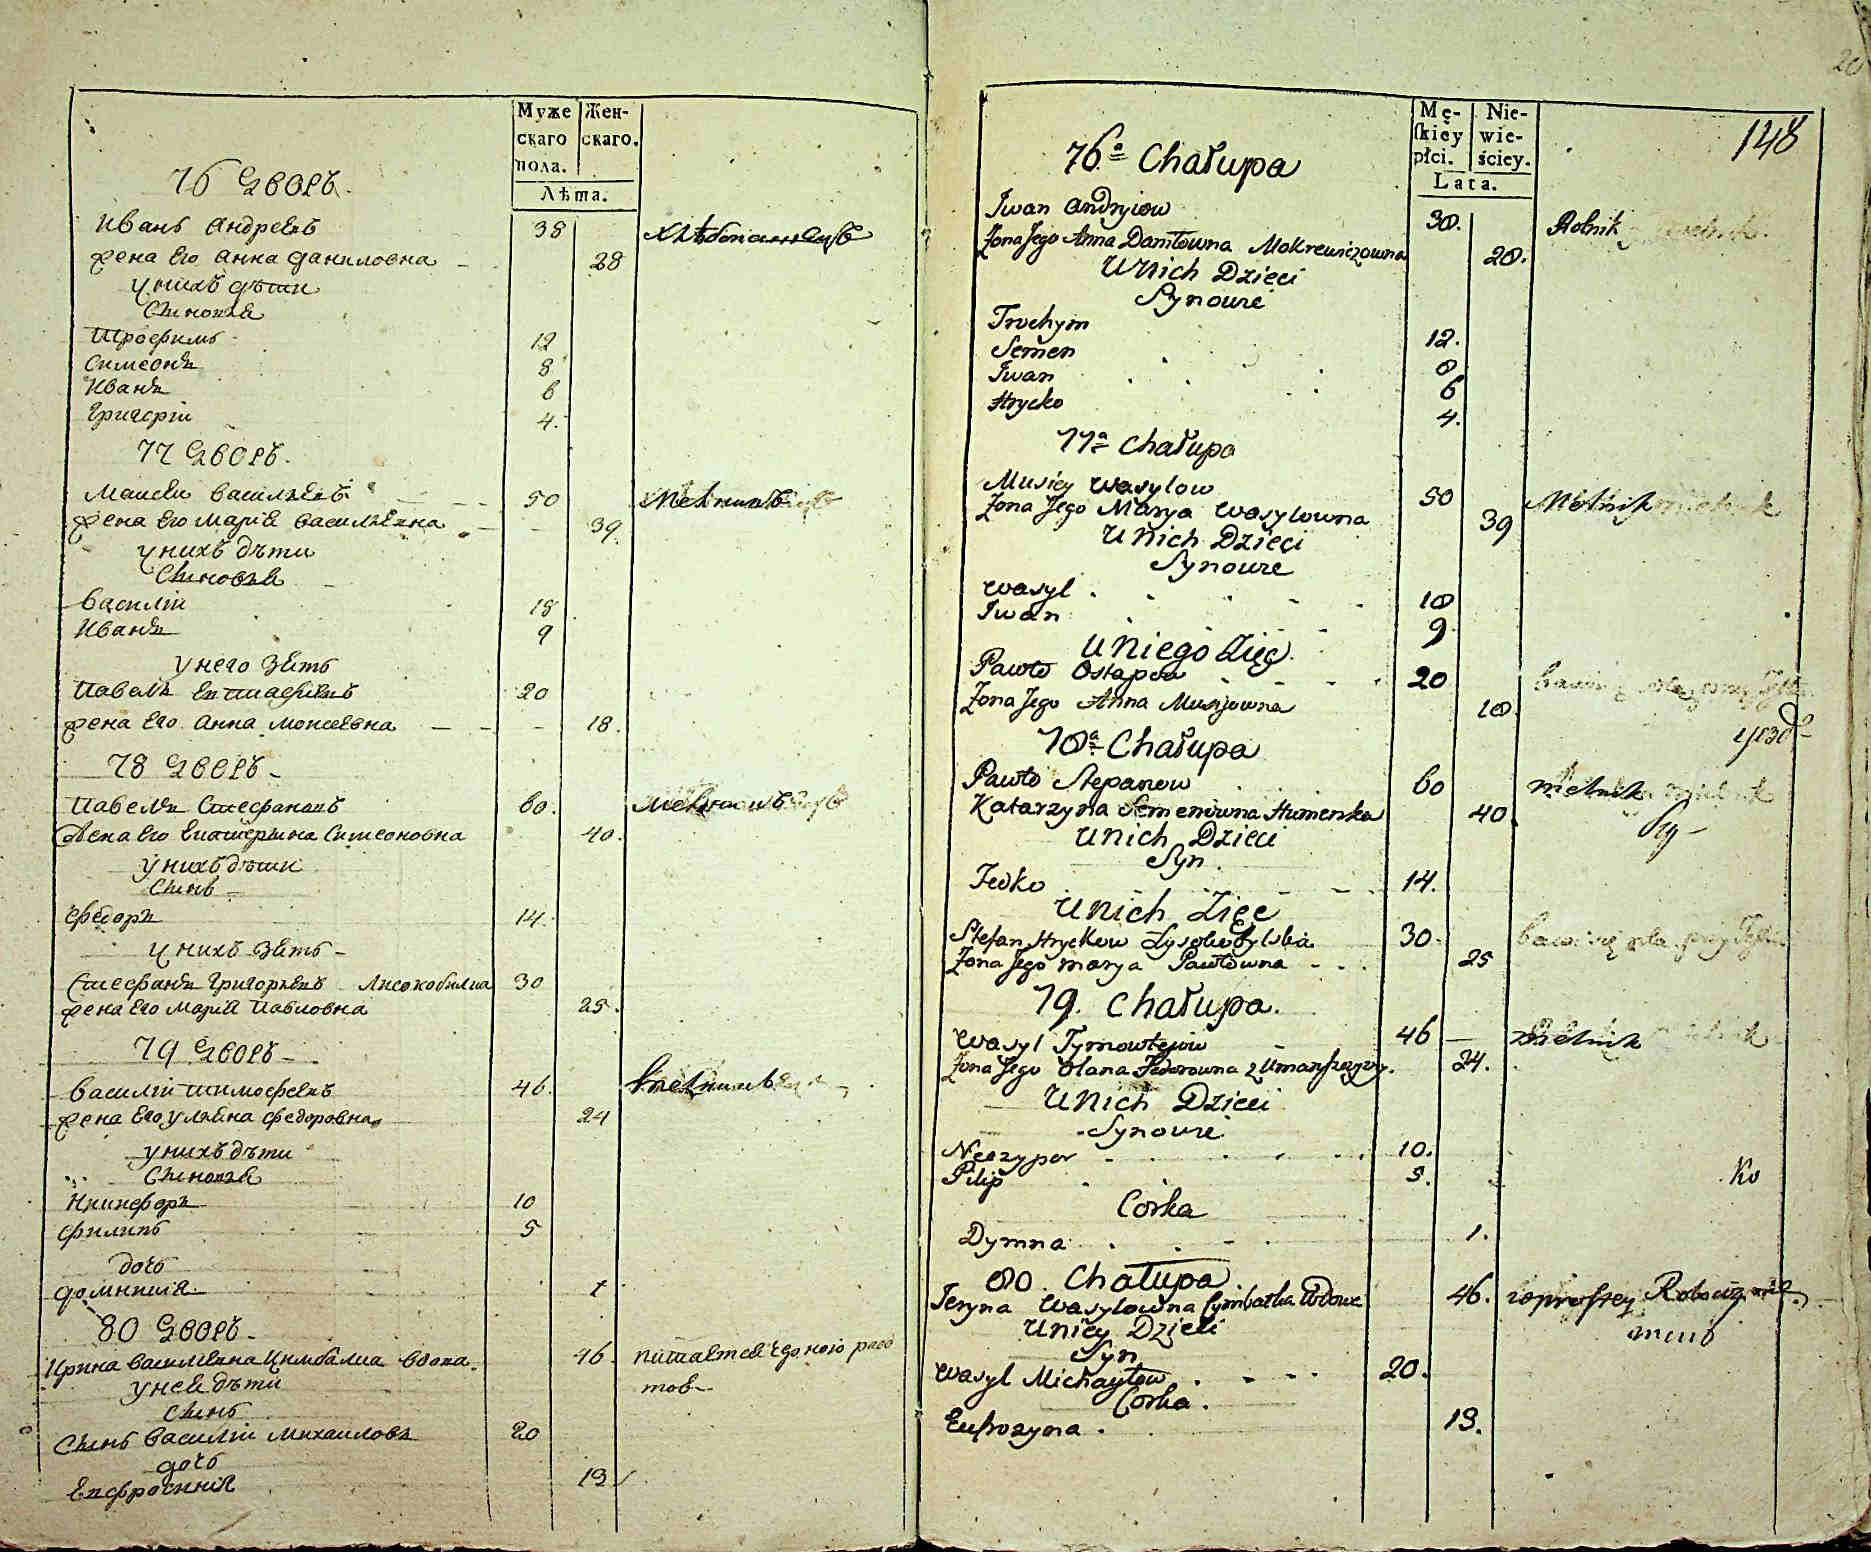 Муже
скаго
пола.
Жен-
скаго.
Лѣта.
76 Дворъ
Иванъ Андреевъ 38 хлѣбопашецъ
жена Его Анна Даниловна 28
у нихъ дѣти
Сыновья
Трофимъ 12
Симеонъ 8
Иванъ 6
Григорій 4.
77 Дворъ.
Моисей Васильевъ 50 мельникъ
жена Его Марія Васильевна 39.
у нихъ дѣти
Сыновья
Василій 18
Иванъ 9
у него Зять
Павелъ Евстафьевъ 20
жена Его Анна Моисеевна 18.
78 Дворъ
Павелъ Стефановъ 60. мельникъ
Жена Его Екатерина Симеоновна 40.
у нихъ дѣти
Сынъ
Федоръ 14.
у нихъ Зять
Стефанъ Григорьевъ Лисокобилка 30
жена Его Марія Павловна 25.
79 Дворъ
Василій Тимофеевъ 46. мельникъ
жена Его Уляна Федоровна 24
у нихъ дѣти
Сыновья
Никифоръ 10
Филипъ 5
дочь
Домникія 1
80 Дворъ
Ирина Васильевна Цимбалка вдова. 46. питается черною рабо
тою
у ней дѣти
Сынъ
Сынъ Василій Михаиловъ 20
дочь
Евфросинія 13
Mę-
skiey
płci.
Nie-
wie-
ściey.
Lata.
148
76.a Chałupa
Iwan Andryiow 38. Rolnik
Żona Jego Anna Daniłowna Mokrewiczowna 28.
U Nich Dzieci
Synowie
Trochym 12.
Semen 8
Iwan 6
Hrycko 4.
77a Chałupa
Musiey Wasylow 50 Mielnik
Żona Jego Marya Wasylowna 39
U Nich Dzieci
Synowie
Wasyl 18
Iwan 9
U Niego Zięć
Pawło Ostapow 20
Żona Jego Anna Musijowna 18.
78a Chałupa
Pawło Stepanow 60 mielnik
Katarzyna Semenowna Humenka 40
U Nich Dzieci
Syn
Fedko 14.
U Nich Zięć
Stefan Hryckow Łysokobylska 30.
Żona Jego Marya Pawłowna 25
79. Chałupa.
Wasyl Tymowtejow 46 mielnik
Żona Jego Olana Fedorowna z Umańszczyzny. 24.
U Nich Dzieci
Synowie
Neczypor 10.
Filip 5.
Ko
Corka
Dymna 1.
80. Chałupa
Jeryna Wasylowna Cymbałka Wdowa 46.
U Niey Dzieci
Syn
Wasyl Michayłow 20.
Corka.
Eufrozyna 13.